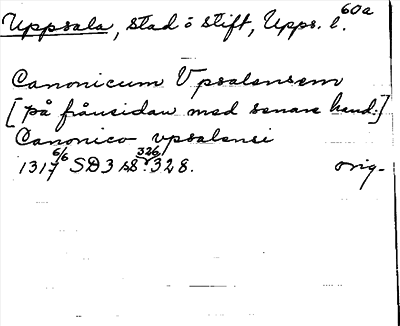 Uppsala, stad o stift, Upps. l. 60a
Canonicum Vpsalensem
[på frånsidan med senare hand:]
Canonico vpsalensi
1317 6/6 SD 3 s. 326, 328. orig.